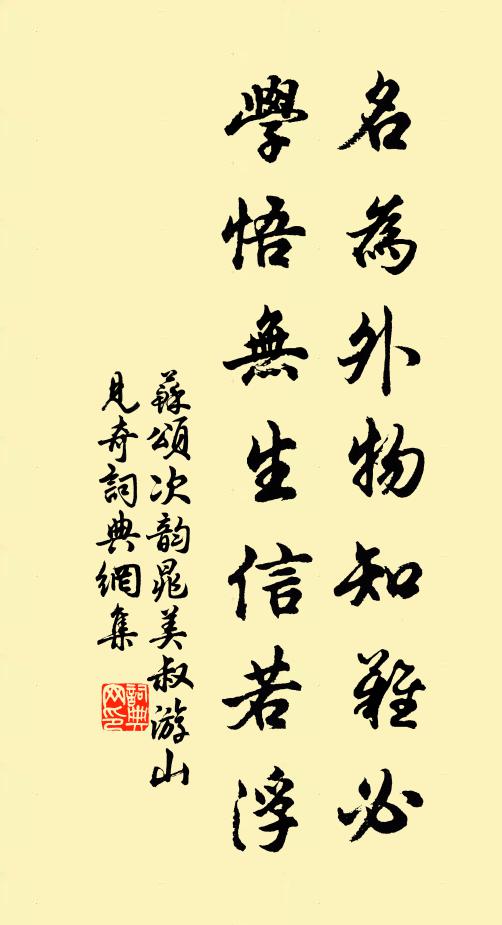 名為外物知難必
學悟無生信若浮
蘇頌次韵晁美叔游山
見奇詞典網集
詞典
网印